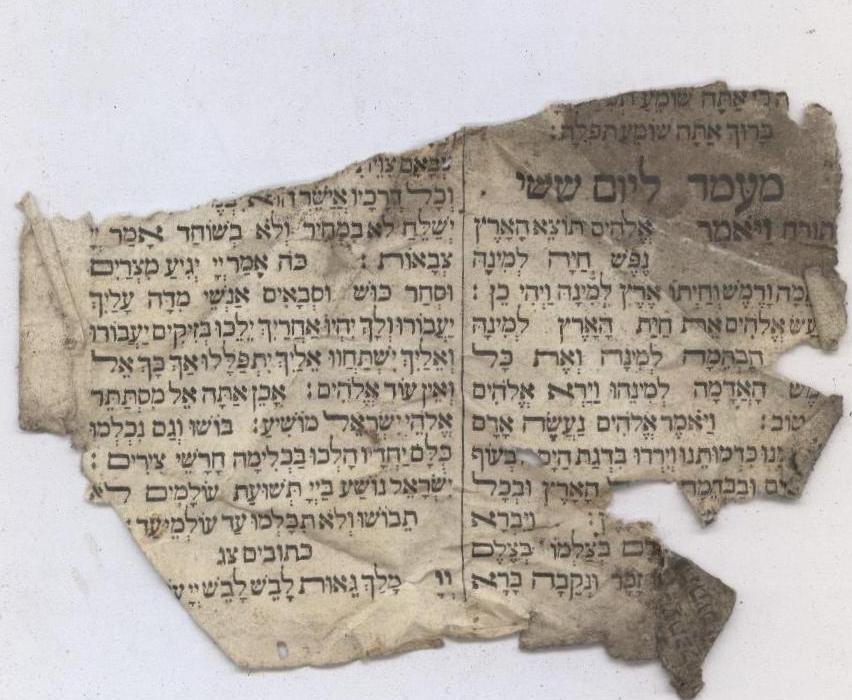 אַתָּה שׁוֹמֵעַ
בָּרוּךְ אַתָּה שׁוֹמֵעַ תְּפִלָּה:
מעמד ליום ששי
תורה וַיֹּאמֶר אֱלֹהִים תּוֹצֵא הָאָרֶץ
נֶפֶשׁ חַיָּה לְמִינָהּ
וָרֶמֶשׂ וְחַיְתוֹ אֶרֶץ לְמִינָהּ וַיְהִי כֵן:
אֱלֹהִים אֶת חַיַּת הָאָרֶץ לְמִינָהּ
הַבְּהֵמָה לְמִינָהּ וְאֶת כָּל
הָאֲדָמָה לְמִינֵהוּ וַיַּרְא אֱלֹהִים
טוֹב: וַיֹּאמֶר אֱלֹהִים נַעֲשֶׂה אָדָם
כִּדְמוּתֵנוּ וְיִרְדּוּ בִדְגַת הַיָּם בְּעוֹף
הָאָרֶץ וּבְכָל
וַיִּבְרָא
בְּצַלְמוֹ בְּצֶלֶם
זָכָר וּנְקֵבָה בָּרָא
וְכָל דְּרָכָיו אֲשֶׁר
יְשַׁלֵּחַ לֹא בִמְחִיר וְלֹא בְשׁוֹחַד אָמַר יְיָ
צְבָאוֹת: כֹּה אָמַר יְיָ יְגִיעַ מִצְרַיִם
וּסְחַר כּוּשׁ וּסְבָאִים אַנְשֵׁי מִדָּה עָלַיִךְ
יַעֲבוֹרוּ וְלָךְ יִהְיוּ אַחֲרַיִךְ יֵלֵכוּ בַּזִּיקִים יַעֲבוֹרוּ
וְאֵלַיִךְ יִשְׁתַּחֲווּ אֵלַיִךְ יִתְפַּלָּלוּ אַךְ בָּךְ אֵל
וְאֵין עוֹד אֱלֹהִים: אָכֵן אַתָּה אֵל מִסְתַּתֵּר
אֱלֹהֵי יִשְׂרָאֵל מוֹשִׁיעַ: בּוֹשׁוּ וְגַם נִכְלְמוּ
כֻּלָּם יַחְדָּיו הָלְכוּ בַכְּלִימָּה חָרָשֵׁי צִירִים:
יִשְׂרָאֵל נוֹשַׁע בַּיְיָ תְּשׁוּעַת עוֹלָמִים לֹא
תֵבוֹשׁוּ וְלֹא תִכָּלְמוּ עַד עוֹלְמֵי עַד:
כתובים צג
יְיָ מָלָךְ גֵּאוּת לָבֵשׁ לָבֵשׁ יְיָ